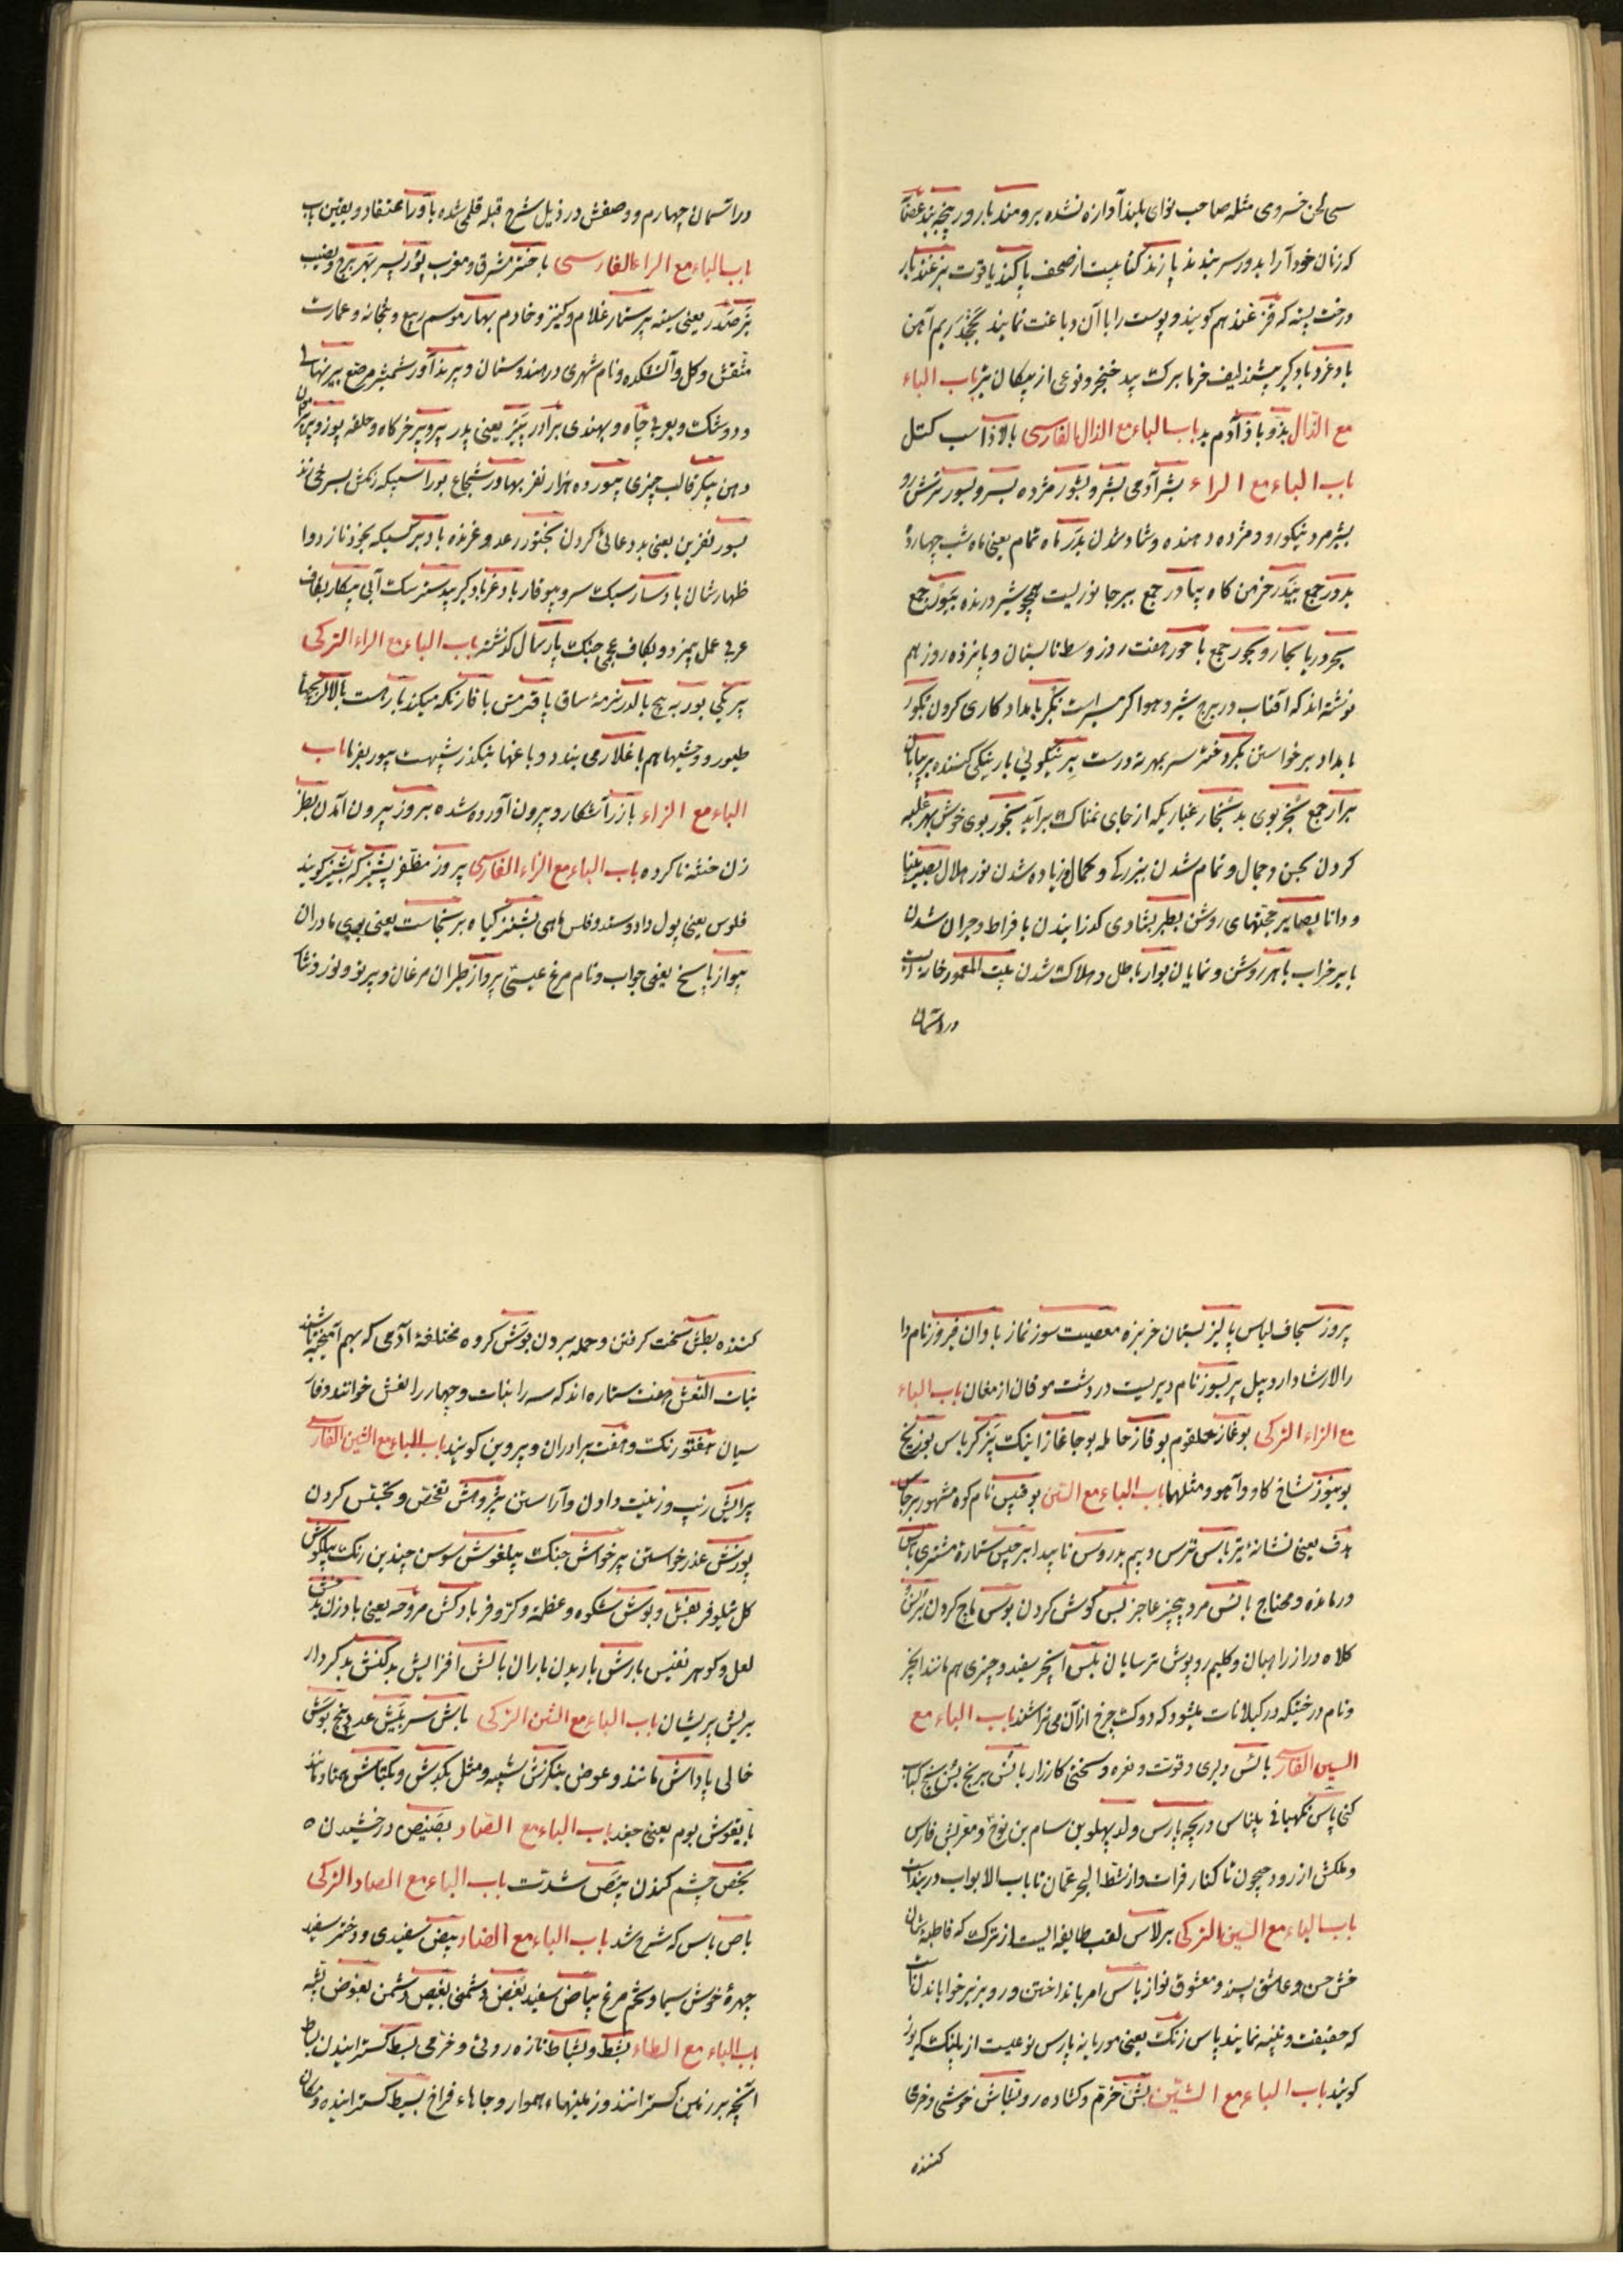 سی لحن خسروی مثله صاحب نوای بلند آوازه نشده برومند بارور پیچه بند عصا
که زنان خود آرا بدور سر بندند پازند کتابیست از صحف پاکند یاقوت بزغند بار
درخت پسته که قزغند هم کویند و پوست را با آن دباغت نمایند بجند ریم آهن
باد غرد بادکیر پیشند لیف خرما برکت بید خنجر و نوعی از پیکان تیز باب الباء
مع الذال بذو باذ آدم بد باب الباء مع الذال الفارسی بالاذ اسب کتل
باب الباء مع الراء بشر آدمی بشر و بشور مژده بسر و بسور ترش رو
بشیر مرد نیکو رو و مژده دهنده و شاد شدن بدر ماه تمام یعنی ماه شب چهارده
بدور جمع بیدر خرمن کاه بیادر جمع ببر جانوریست همچو شیر درنده ببور جمع
بحر دریا بحار و بحور جمع باحور هفت روز وسط تابستان و پانزده روز هم
نوشته اند که آفتاب در برج شیر و هوا کرمتر است بکر بامداد کاری کردن بکور
بامداد برخواستن بکر دختر سر بمهر نه درست بر نیکوئی بار نیکی کننده بر بیابان
برار جمع بخر بوی بد بخار غباریکه از جای نمناک برآید بخور بوی خوش بهر غلبه
کردن بحسن و جمال و تمام شدن بزرکی و کمال و زیاده شدن نور هلال بصیر بینا
و دانا بصایر حجتهای روشن بطر بشادی کذرانیدن بافراط و حیران شدن
بایر خراب باهر روشن و نمایان بوار باطل و هلاک شدن بیت المعمور خانه ایست
در آسمان
در آسمان چهارم و وصفش در ذیل شرح قبله قلمی شده باور اعتقاد و یقین باب
باب الباء مع الراء الفارسی باختر مشرق و مغرب پور پسر بهر برخ و نصیب
بر صدر یعنی سینه پرستار غلام و کنیز و خادم بهار موسم ربیع و بتخانه و عمارت
منقش و کل و آتشکده و نام شهری در هندوستان و پرندآور شمشیر مرصع بیر نهالی
و دوشک و بعربی چاه و بهندی برادر پیر یعنی پدر پیر و پر خرکاه و حلقه پوز و پیرامون
دهن پیکر قالب چیزی بیور ده هزار نفر بهادر شجاع بور اسپیکه رنکش بسرخی زند
بسور نفرین یعنی بد دعائی کردن بختور رعد و غرنده بادبر کسیکه بخود نازد و ا
ظهار شان باد سار سبک سر و بیوقار باد غر بادکیر بیدستر سک آبی پیکار بقاف
عربی عمل بیمزد و بکاف عجمی جنک پار سال کذشته باب الباء مع الراء الترکی
بیر یکی بور به پیچ بالدر نرمهٔ ساق باقر مس باقار نکه میکند بار هست بالالر بچها
طیور و وحشیها هم باغلار می بندد و باغها بنکذر شبهت بیور بفرما باب
الباء مع الزاء بارز آشکار و بیرون آورده شده بروز بیرون آمدن بظر
زن ختنه ناکرده باب الباء مع الزاء الفارسی پیروز مظفر پشیز که بشیز کویند
فلوس یعنی پول داد و ستد و فلس ماهی بشنز کیاه برنجاست یعنی بوی مادران
پیواز پاسخ یعنی جواب و نام مرغ عیسی پرواز طیران مرغان و پرتو و نور و نثار
پروز سجاف لباس پالیز بستان خربزه معصیت سوز نماز بادان فیروز نام دا
را لارشاد اردبیل پیرسوز نام دیریست در دشت موقان از مغان باب الباء
مع الزاء الترکی بوغاز حلقوم بوغاز حامله بوجاغاز اینک بز کرباس بوز یخ
بوینوز شاخ کاو و آهو و مثلهما باب الباء مع السین بوقبیس نام کوه مشهور برجاس
هدف یعنی نشانهٔ تیر باس ترس و بیم بدروس ناپیدا برجیس ستارهٔ مشتری باس
درمانده و محتاج بائس مرد بیچیز عاجز بس کوش کردن بوس ماچ کردن برنس
کلاه دراز راهبان و کلیم روپوش ترسایان بلس انجیر سفید و چیزی هم مانند انجیر
و نام درختیکه در کیلانات میشود که دوک چرخ از آن می تراشند باب الباء مع
السین الفارسی بائس دلیری و قوت و نعره و سختی کارزار بائس برنج بس بیخ کباب
کنی پاس نکهبانی پلناس دریچه پارس ولد پهلو بن سام بن نوح و معربش فارس
و ملکش از رود جیحون تا کنار فرات و از شط البحر عمان تا باب الابواب دربندان
باب الباء مع السین الترکی برلاس لقب طایفه ایست از ترک که قاطبهٔ شان
خش حسن و عاشق پسند و معشوق نواز باس امر بانداختن و رو بزیر خواباندن
که حقیقت و پنبه نمایند پاس زنک یعنی موریانه پارس نوعیست از پلنک که یوز
کویند باب الباء مع الشین بش خرم و کشاده رو بشاش خوشی و خرمی
کننده
کننده بطش سخت کرفتن و حمله بردن بوش کروه مختلفهٔ آدمی که بهم آمیخته باشند
بنات النعش هفت ستاره اند که سه را بنات و چهار را نعش خوانند و فار
سیان هفتورنک و هفت برادران و پروین کویند باب الباء مع الشین الفارسی
پیرایش زیب و زینت دادن و آراستن پژوهش تفحص و تجسس کردن
پوزش عذر خواستن پرخاش جنک پیلغوش سوسن چندین رنک پیلکوش
کل نیلوفر بفش و بوش شکوه و عظمه و کر و فر بادکش مروحه یعنی بادزن بدخش
لعل و کوهر نفیس بارش باریدن باران بالش افزایش بدکنش بدکردار
بریش پریشان باب الباء مع الشین الترکی باش سر بش عدد پنج بوش
خالی پاداش مانند و عوض بنکزش شبیه و مثل بکدش و بکتاش همتا و مانند
بایقوش بوم یعنی جغد باب الباء مع الصاد بصیص درخشیدن ه
بخص چشم کندن بیص شدت باب الباء مع الصاد الترکی
باص باس که شرح شد باب الباء مع الضاد بیض سفیدی و دختر سفید
چهرهٔ خوش سیما و تخم مرغ بیاض سفید بغض دشمنی بغیض دشمن بعوض پشه
باب الباء مع الطاء بشط و بشاط تازه روئی و خرمی بسط کسترانیدن بساط
آنچه بر زمین کسترانند و زمینهاء هموار و جاهاء فراخ بسیط کسترانیده و مکان